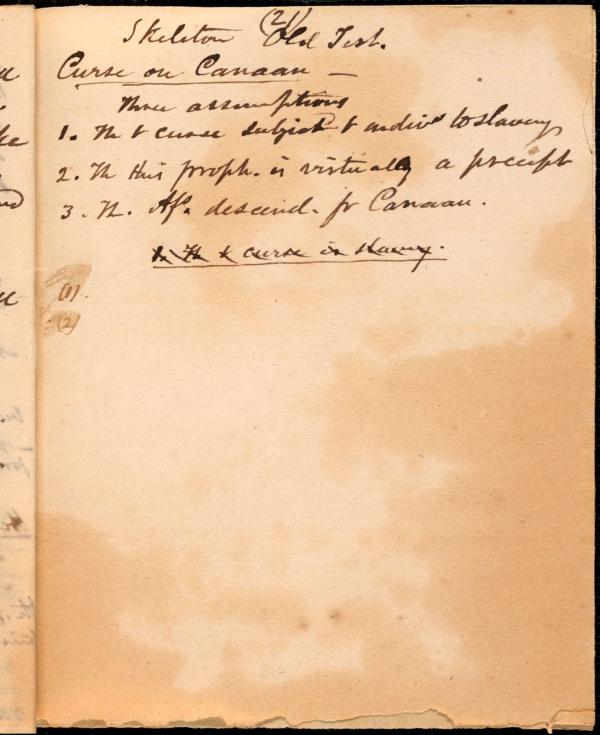 (21)
Skeleton Old Test.
Curse on Canaan —
Three assumptions
1. Th t curse subject t indivs to slavery
2. Th this proph. is virtually a precept
3. Th. Af. descend. fr Canaan.
1. Th t curse is slavery.
(1).
(2)